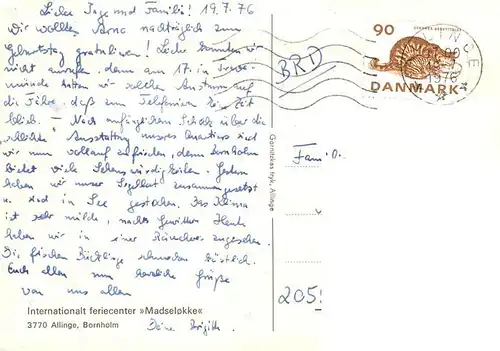 Liebe Inge und Familie! 19.7.76
Wir wollen Arne nachträglich zum
Geburtstag gratulieren! Leider konnten wir
nicht anrufen, denn am 17. in Trave-
münde hatten wir solchen Ansturm auf
die Fähre, daß zum Telefonieren keine Zeit
blieb. – Nach anfänglichem Schock über die
"schlichte" Ausstattung unseres Quartiers sind
wir nun vollauf zufrieden, denn Bornholm
bietet viele Sehenswürdigkeiten. Gestern
haben wir unser Segelboot zusammengesetzt
u. sind in See gestochen. Das Klima
ist sehr milde, nachts Gewitter. Heute
haben wir in einer Räucherei zugesehen.
Die frischen Bücklinge schmecken köstlich.
Euch allen nun herzliche Grüße
von uns allen
Deine Brigitte
Internationalt feriecenter »Madseløkke«
3770 Allinge, Bornholm
Gornitzkas tryk, Allinge
90
DANMARK
1976
BRD
Fam. D.
205!